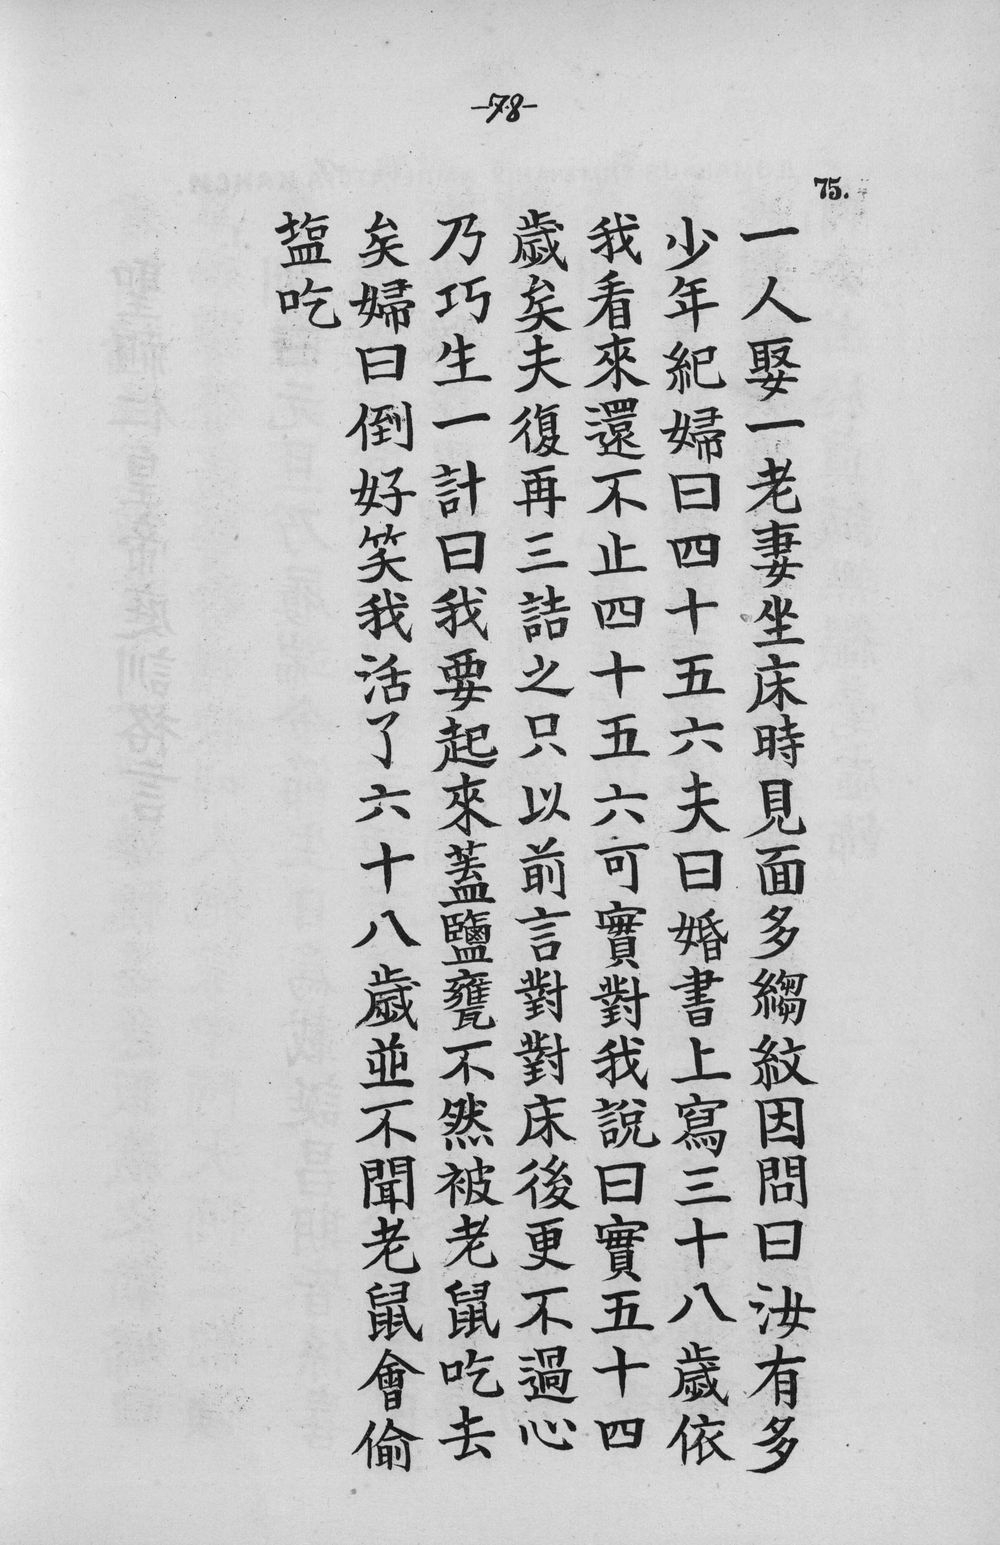 -78-
75.
一人娶一老妻坐床時見面多縐紋因問曰汝有多
少年紀婦曰四十五六夫曰婚書上寫三十八歲依
我看來還不止四十五六可實對我說曰實五十四
歲矣夫復再三詰之只以前言對對床後更不過心
乃巧生一計曰我要起來蓋鹽甕不然被老鼠吃去
矣婦曰倒好笑我活了六十八歲並不聞老鼠會偷
塩吃